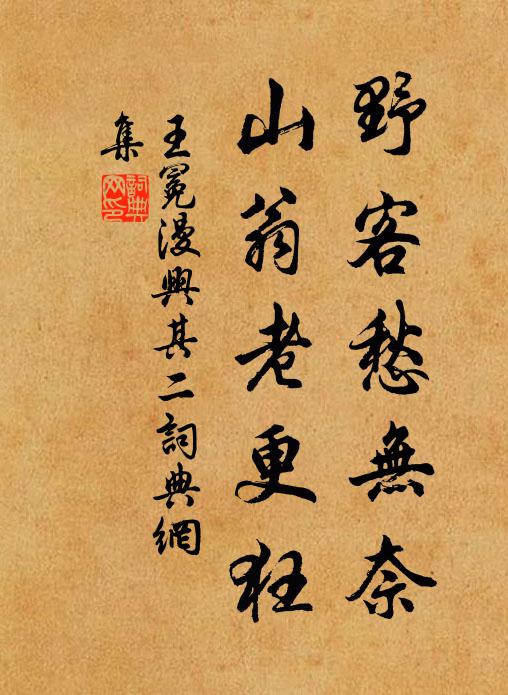 野客愁無奈
山翁老更狂
王冕漫興其二詞典網
集
詞典网印